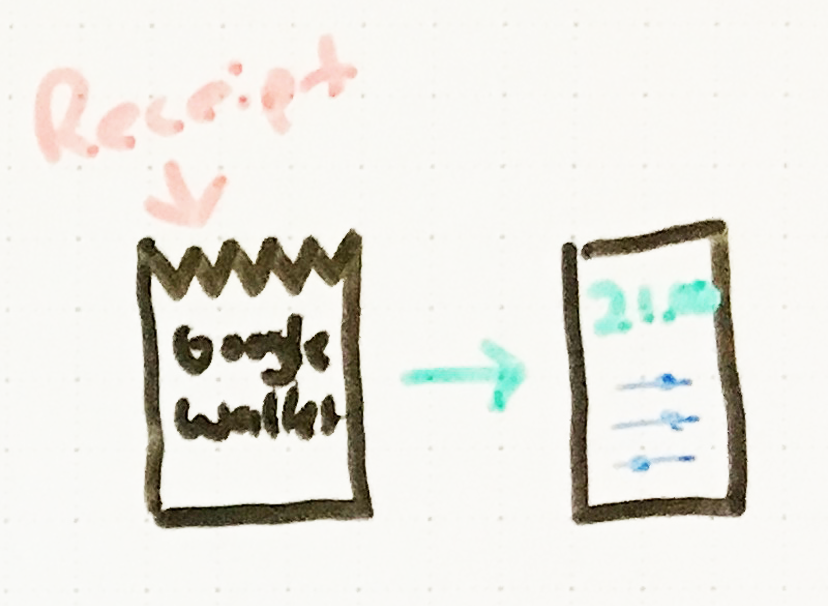 Receipt
Google
Wallet